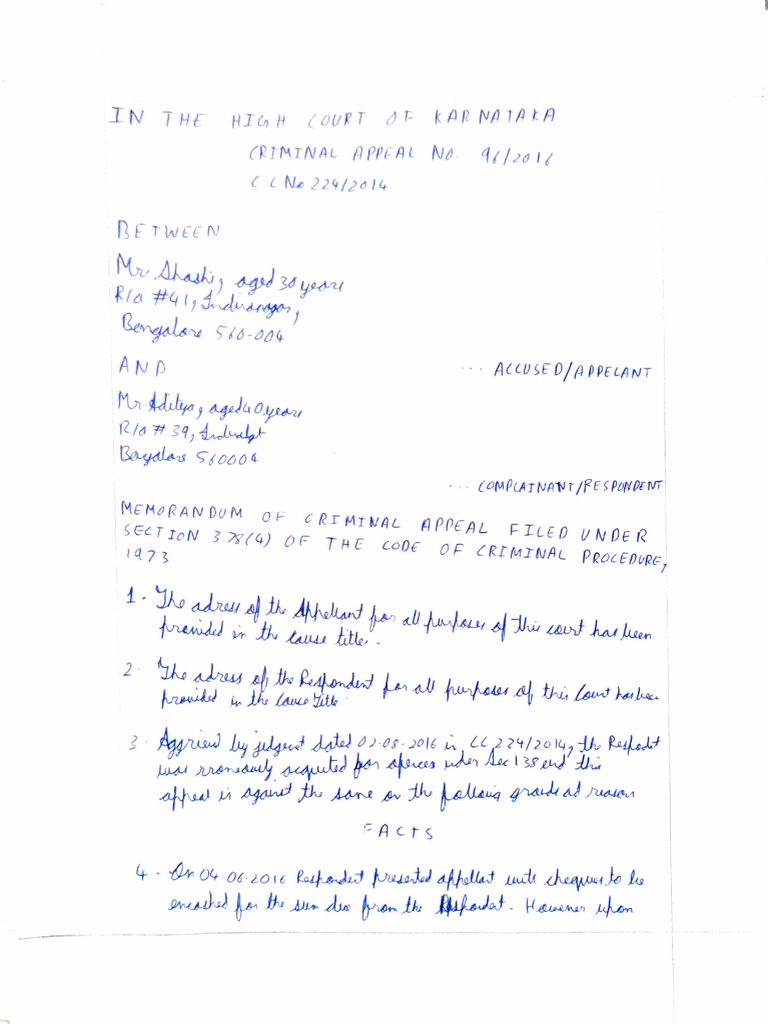 IN THE HIGH COURT OF KARNATAKA
CRIMINAL APPEAL NO. 96/2016
CC No 224/2014
BETWEEN
Mr Shashi, aged 30 years
R/a #41, Indiranagar,
Bangalore 560-004
AND
... ACCUSED/APPELANT
Mr Aditya, aged 40 years
R/a # 39,
Bangalore 560004
... COMPLAINANT/RESPONDENT
MEMORANDUM OF CRIMINAL APPEAL FILED UNDER
SECTION 378(4) OF THE CODE OF CRIMINAL PROCEDURE,
1973
1. The adress of the Appellant for all purposes of this court has been
provided in the cause title.
2. The adress of the Respondent for all purposes of this Court has been
provided in the Cause Title
3. by dated 02.08.2016 in CC 224/2014, the
was for under Sec 138 and this
appeal is against the same on the following reason
FACTS
4. On 04.06.2016 Respondent presented appellant with cheques to be
encashed for the sum due from the Respondent. However upon